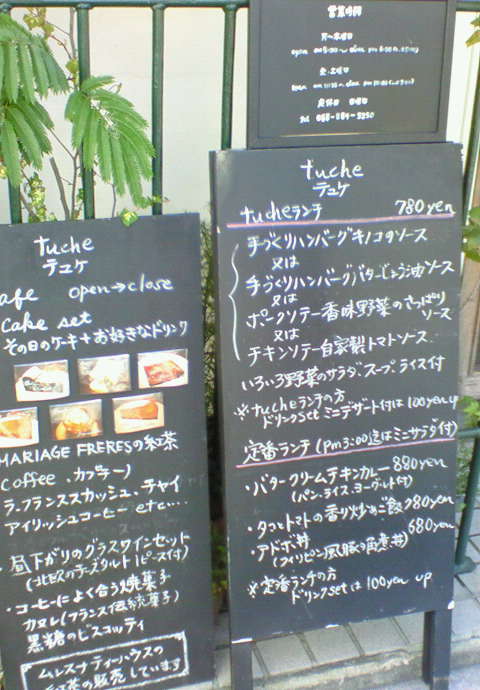 営業時間
月〜木曜日
金、土曜日
定休日 日曜日
tuche
テュケ
tucheランチ 780yen
手づくりハンバーグキノコのソース
又は
手づくりハンバーグバターじょうゆソース
又は
ポークソテー香味野菜のさっぱり
ソース
又は
チキンソテー自家製トマトソース
いろいろ野菜のサラダ、スープ、ライス付
※tucheランチの方
ドリンクset ミニデザート付は100yen up
定番ランチ(pm3:00迄はミニサラダ付)
・バタークリームチキンカレー 880yen
(パン・ライス・ヨーグルト付)
・タコとトマトの香り炒めご飯 780yen
・アドボ丼 680yen
(フィリピン風豚の角煮丼)
※定番ランチの方
ドリンクsetは100yen up
tuche
テュケ
afe open→close
cake set
その日のケーキ+お好きなドリンク
MARIAGE FRERESの紅茶
coffee、カプチーノ
ラ・フランススカッシュ、チャイ
アイリッシュコーヒー etc....
・昼下がりのグラスワインセット
(北欧のチーズタルト1ピース付)
・コーヒーによく合う焼菓子
カヌレ(フランス伝統菓子)
黒糖のビスコッティ
ムレスナティーハウスの
紅茶の販売しています